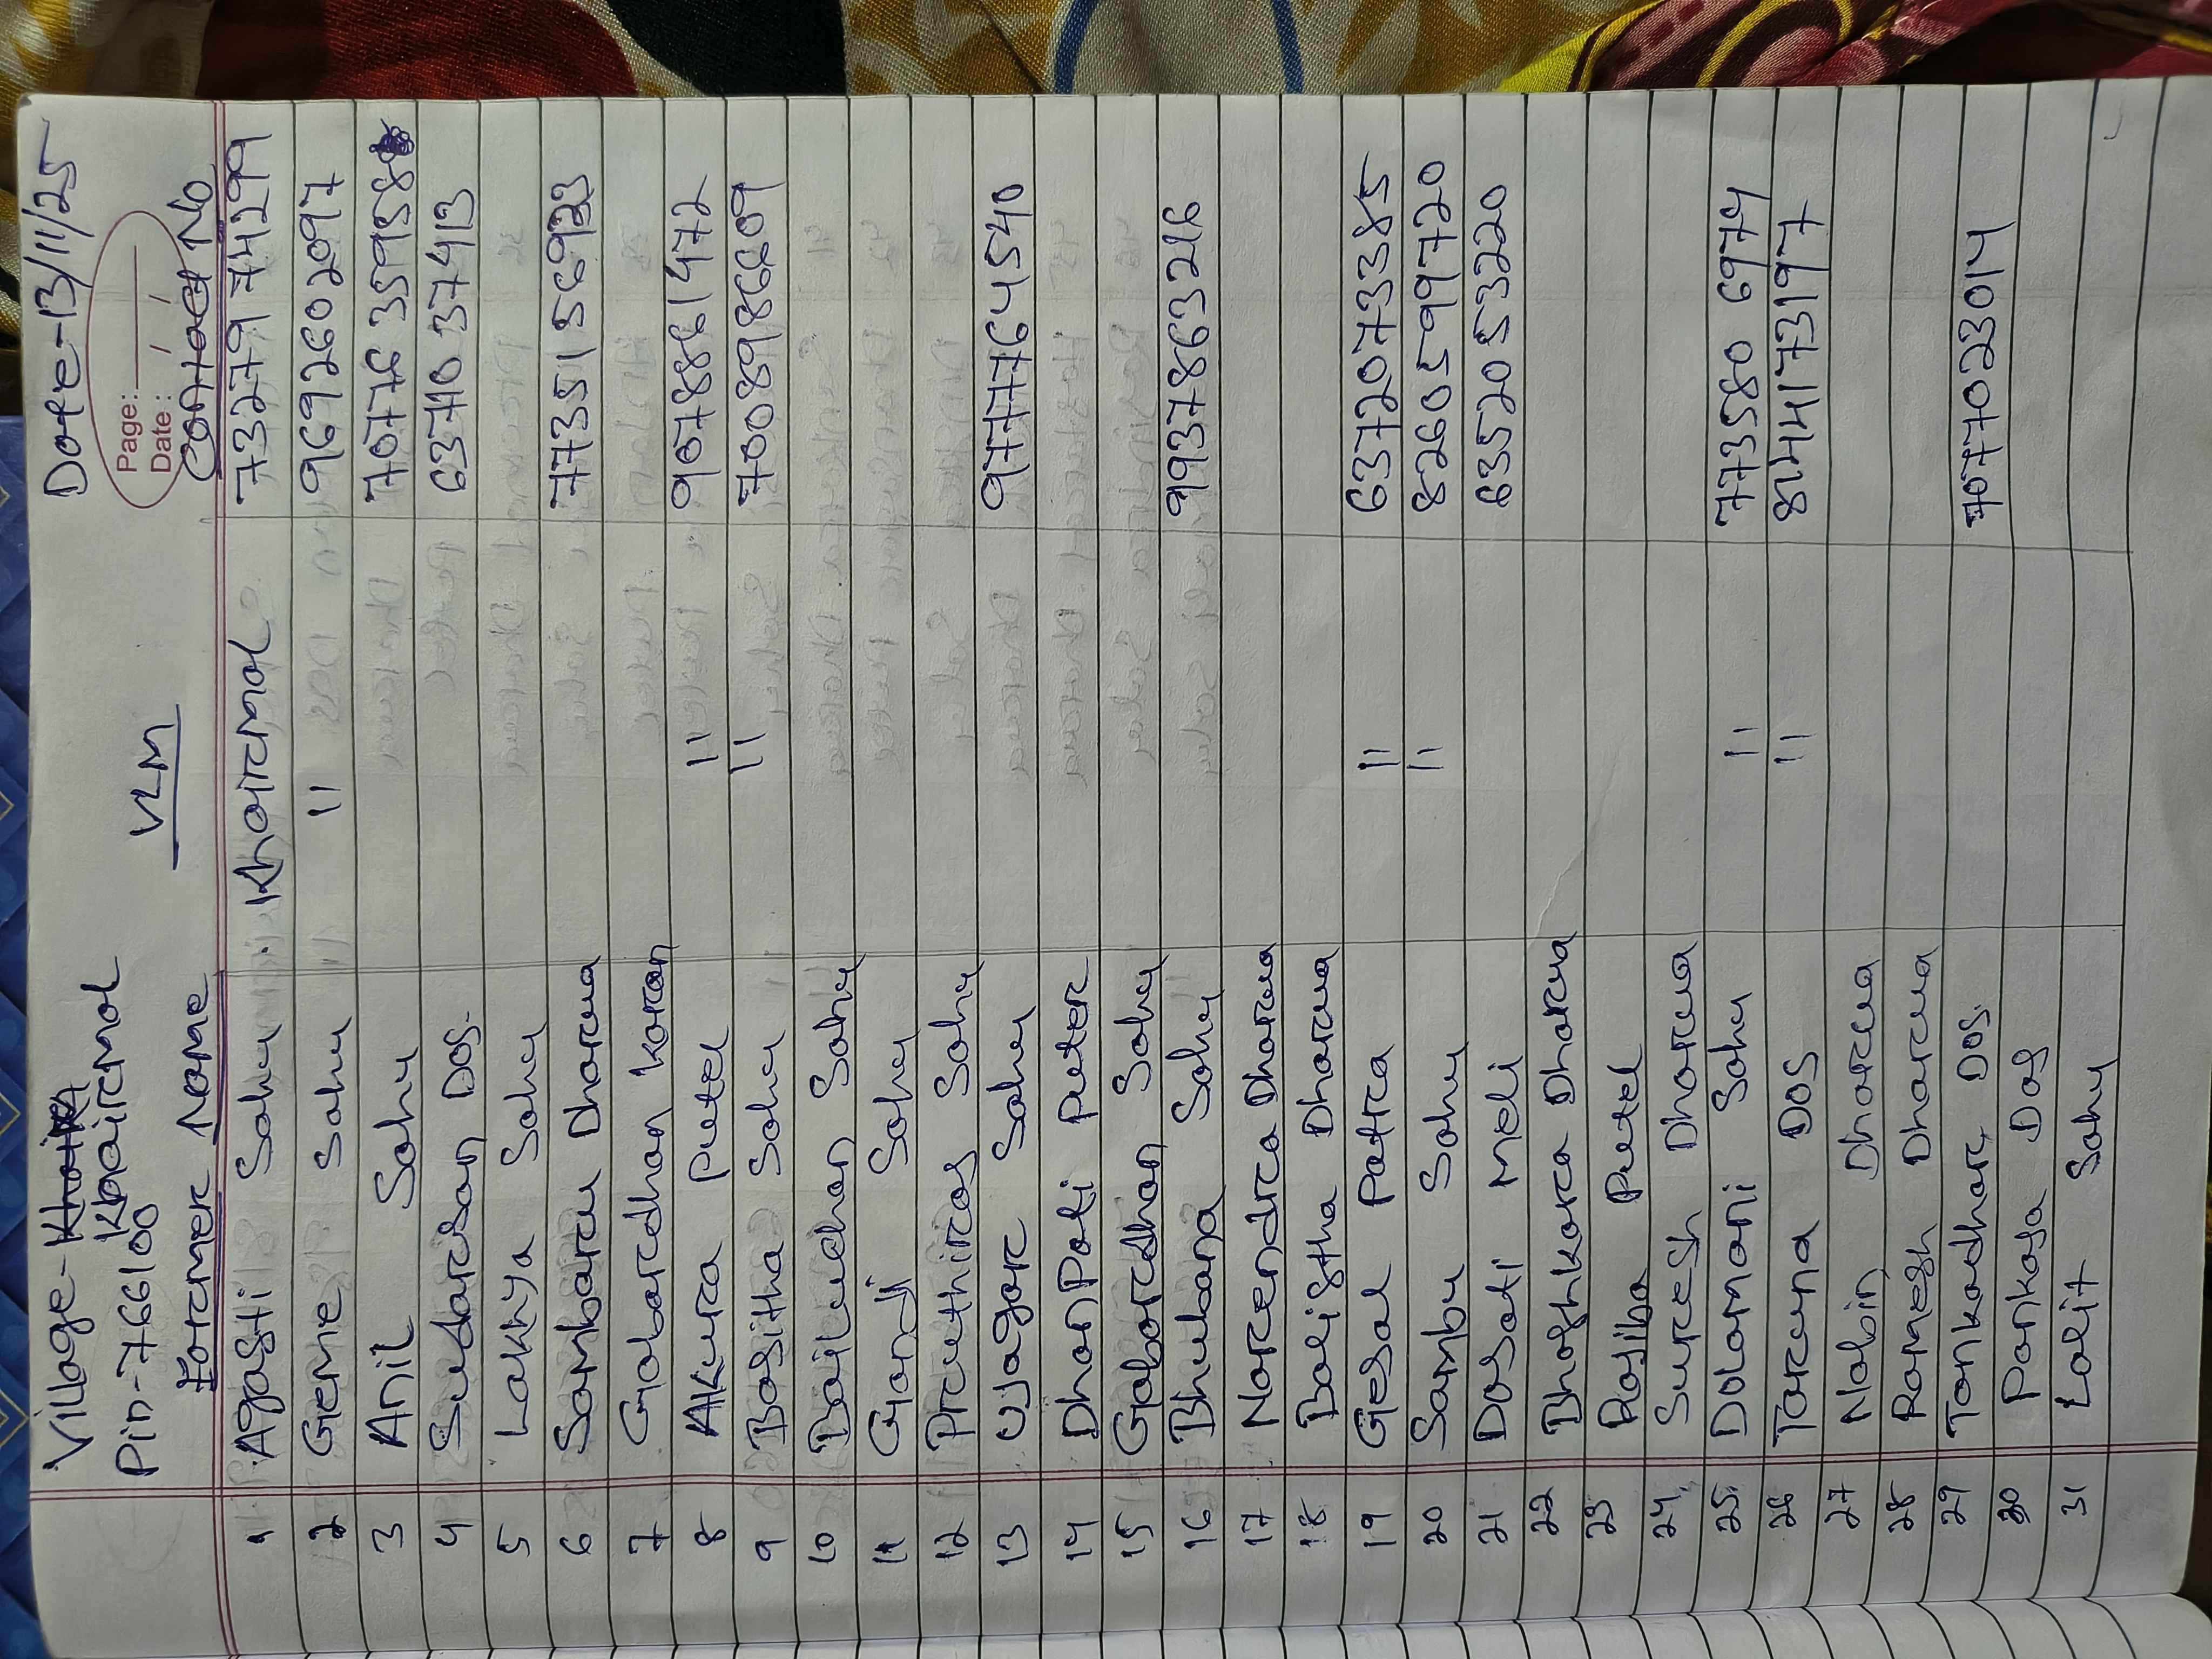 Village- Khairmal Date-13/11/25
Pin-766100
Page:
Date: / /
VLM
Farmer Name Contact No
1 Agasti Sahu Khairmal 7327974299
2 Geme Sahu " 9692602097
3 Anil Sahu 7077635958
4 Sudarsan Das. 6371037413
5 Lakhya Sahu
6 Sambaru Dharua 7735156923
7 Gobardhan Karan
8 Akura Putel " 9078861472
9 Basitha Sahu " 7008986609
10 Sahu
11 Gandi Sahu
12 Pruthiras Sahu
13 Ujagar Sahu 97777645540
14 Dhanpati Puter
15 Gobordhan Sahu
16 Bhubana Sahu 9937863216
17 Narendra Dharua
18 Balistha Dharua
19 Gesal Patra " 6372073385
20 Sambu Sahu " 8260599720
21 Dasati Meli 6352053220
22 Bhashkara Dharua
23 Rajiba Putel
24 Suresh Dharua
25 Dolamani Sahu " 77358069 74
26 Taruna Das " 8144173197
27 Nabin Dharua
28 Ramesh Dharua
29 Tankadhar Das. 7077023014
30 Pankaja Das
31 Lalit Sahu